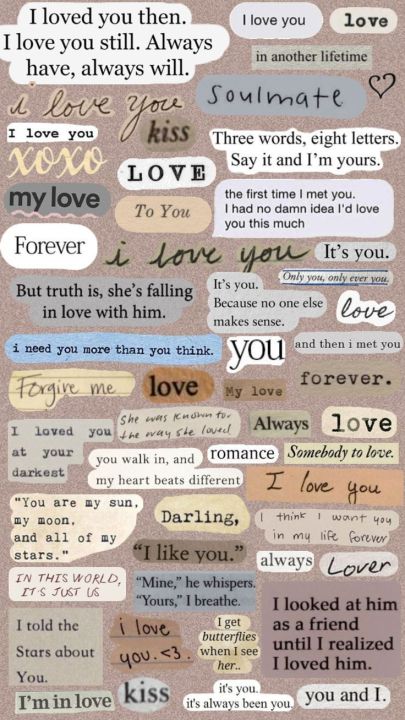 I loved you then.
I love you still. Always
have, always will.
I love you
love
in another lifetime
i love you
Soulmate
I love you
kiss
Three words, eight letters.
Say it and I'm yours.
xoxo
LOVE
my love
To You
the first time I met you.
I had no damn idea I'd love
you this much
Forever
i love you
It's you.
But truth is, she's falling
in love with him.
It's you.
Because no one else
makes sense.
Only you, only ever you.
love
i need you more than you think.
you
and then i met you
Forgive me
love
My love
forever.
I loved you
at your
darkest
She was known for
the way she loved
Always
love
you walk in, and
my heart beats different
romance
Somebody to love.
I love you
"You are my sun,
my moon,
and all of my
stars."
Darling,
I think I want you
in my life forever
"I like you."
always
Lover
IN THIS WORLD,
IT'S JUST US
"Mine," he whispers.
"Yours," I breathe.
I looked at him
as a friend
until I realized
I loved him.
I told the
Stars about
You.
i love
you.<3.
I get
butterflies
when I see
her..
I'm in love
kiss
it's you.
it's always been you.
you and I.